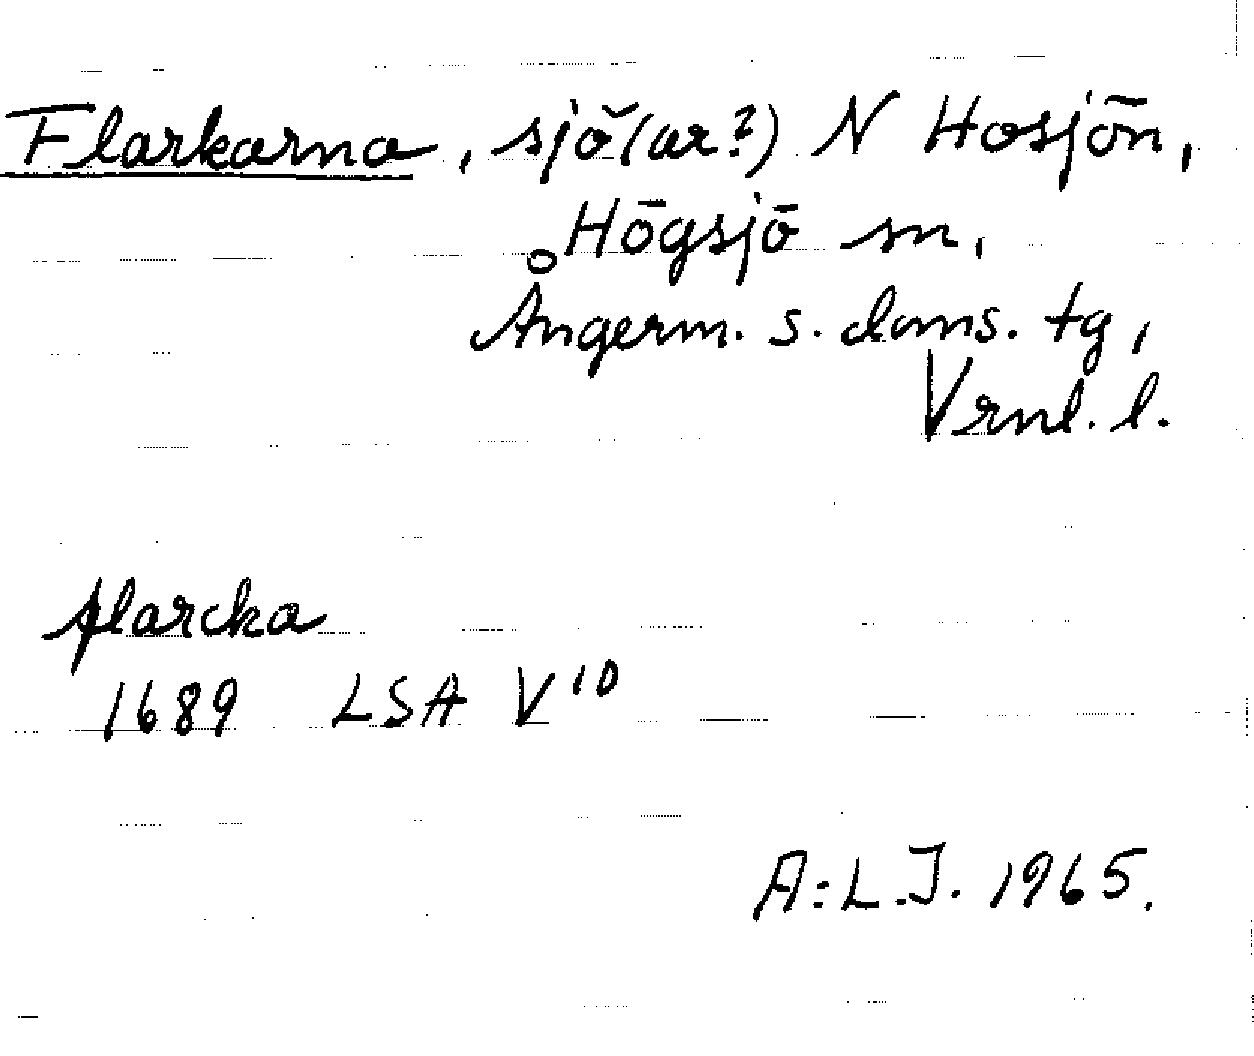 Flarkarna, sjö(ar?) N Hosjön,
Högsjö sn,
Ångerm. s. doms. tg,
Vrnl. l.
flarcka
1689 LSA V 10
A:L.J. 1965.